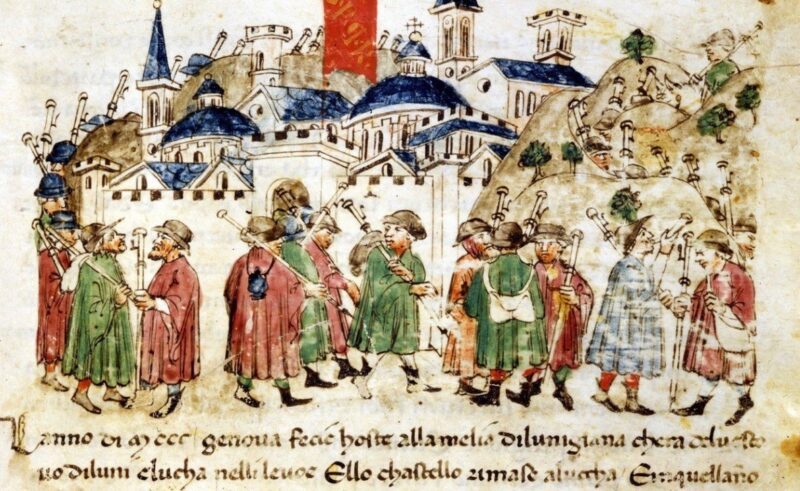 S P Q R
Lanno di MCCC genova fecie hoste allamelia dilunigiana chera deluesco
uo diluni elucha nelli leuoe Ello chastello rimase aluccha / Einquellano